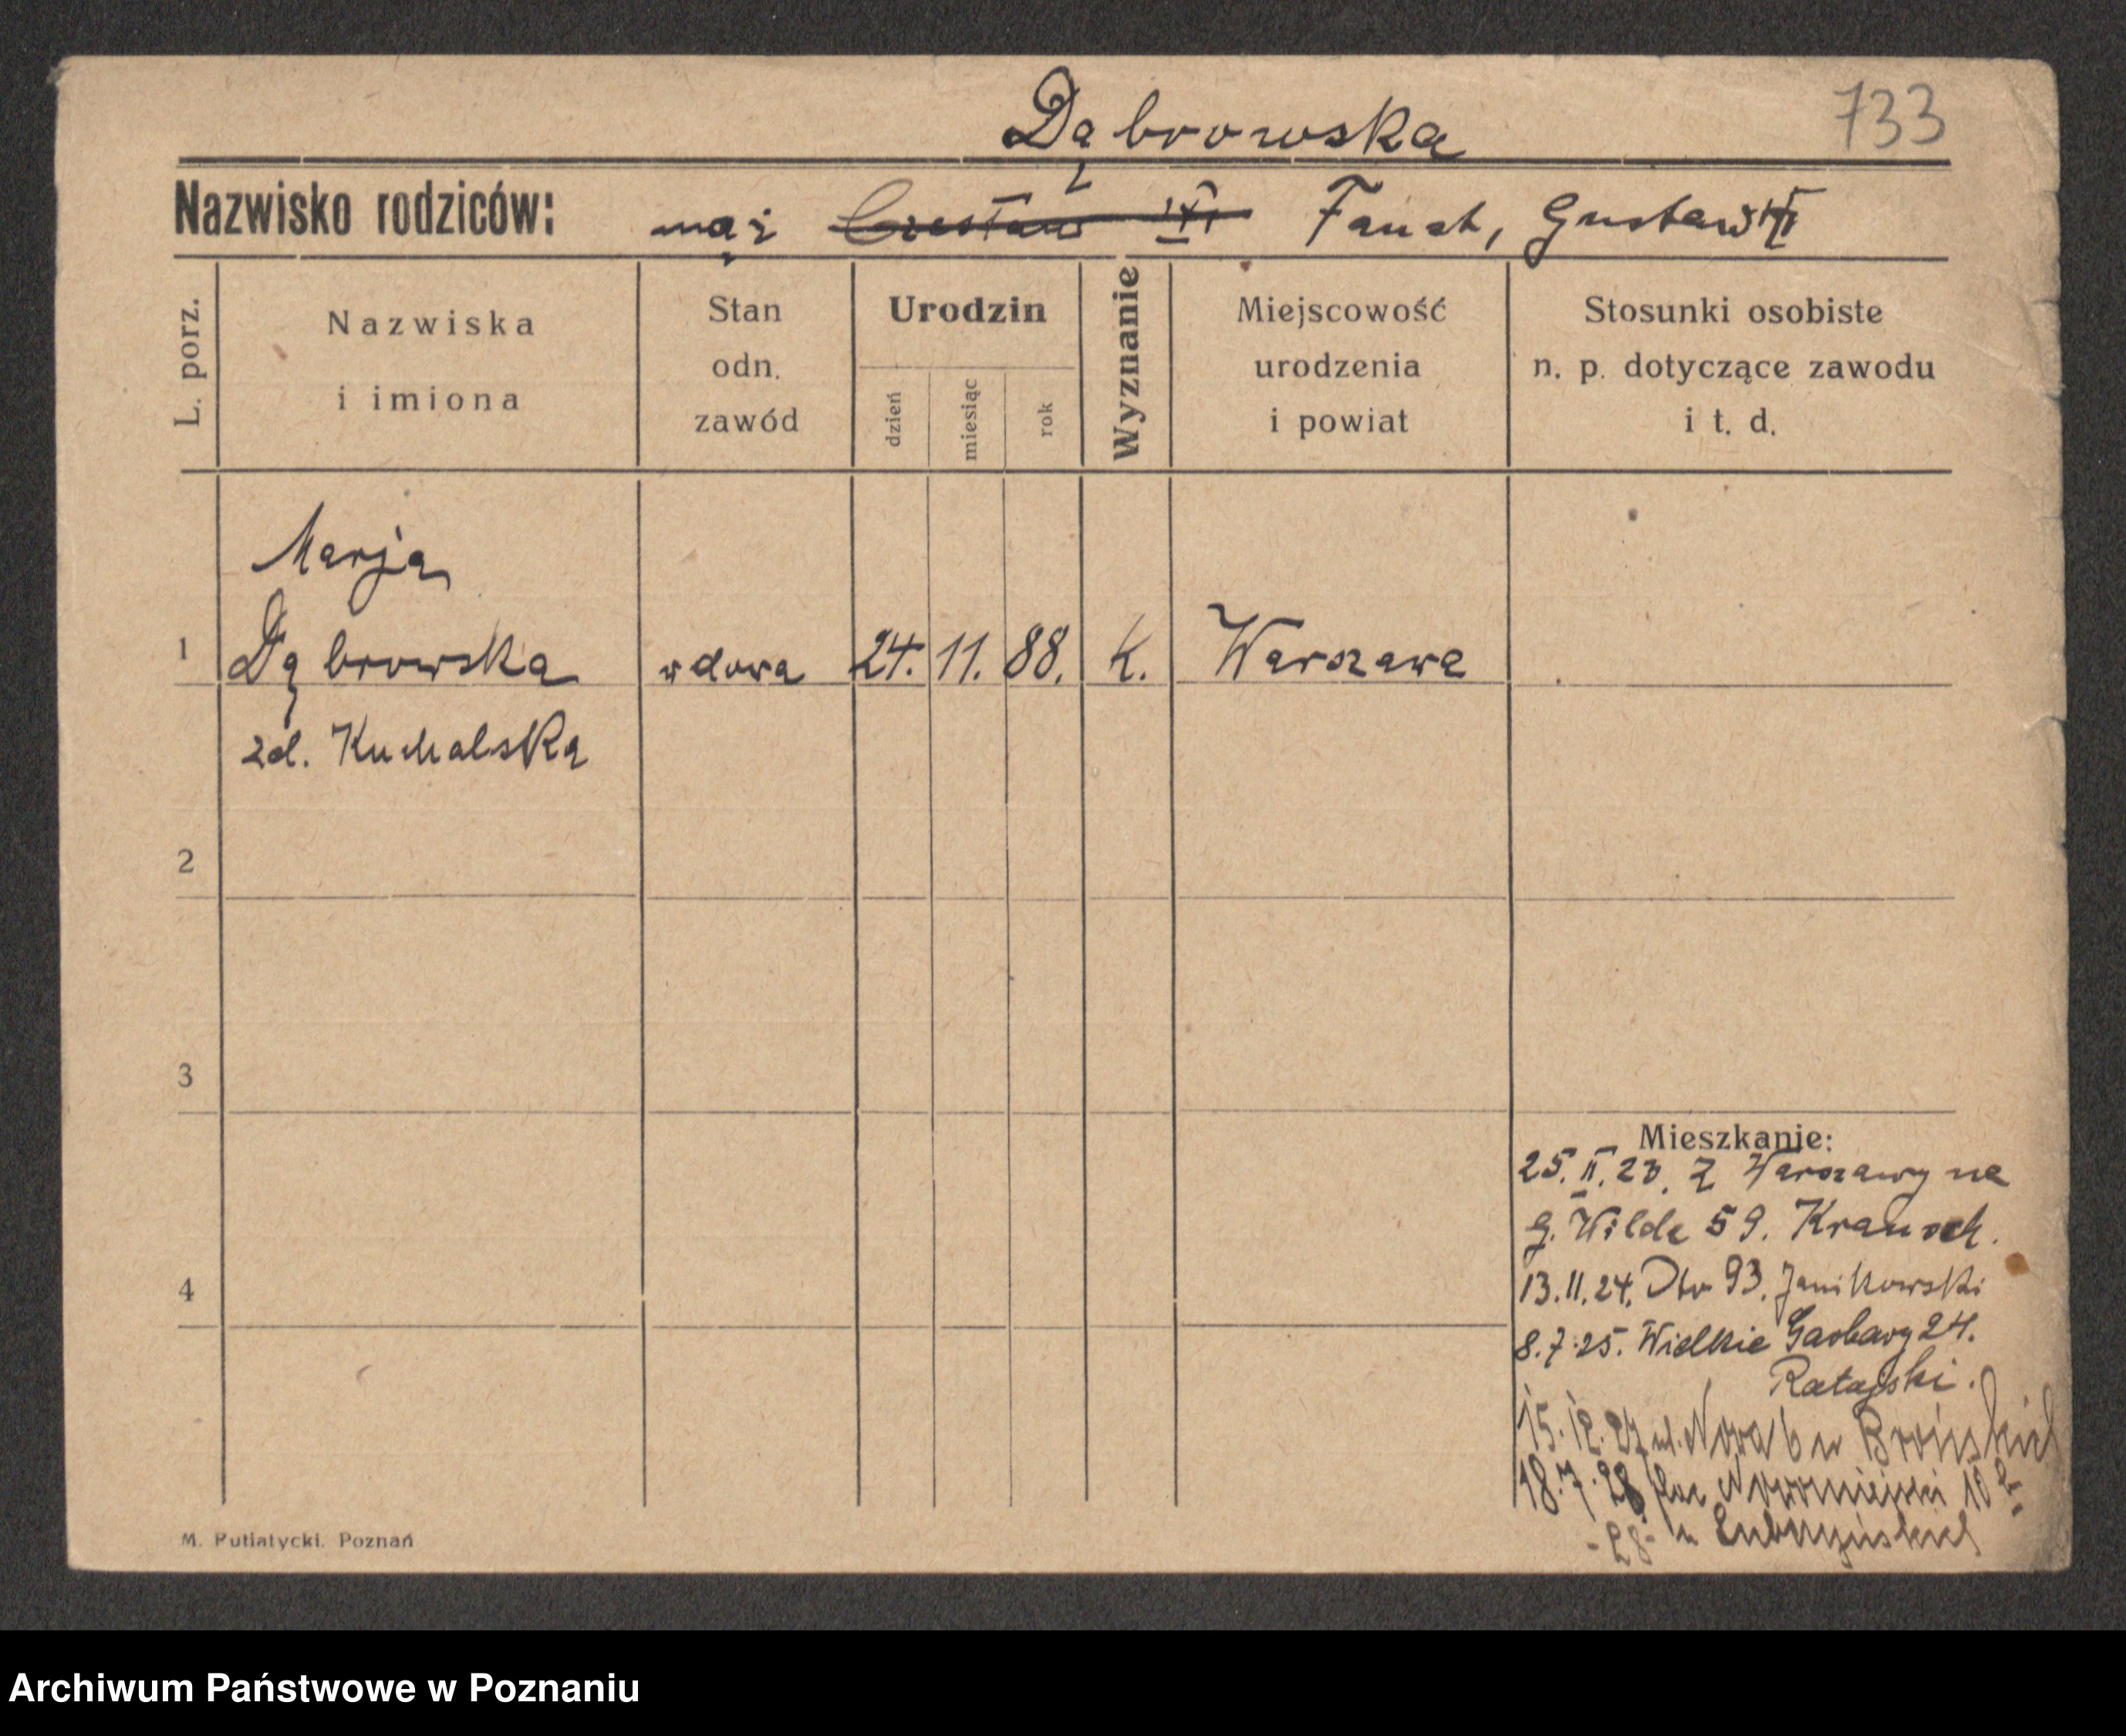 Dąbrowska
733
Nazwisko rodziców: mąż Czesław Faust, Gustaw
L. porz.
Nazwiska
i imiona
Stan
odn.
zawód
Urodzin
dzień
miesiąc
rok
Wyznanie
Miejscowość
urodzenia
i powiat
Stosunki osobiste
n. p. dotyczące zawodu
i t. d.
Marja
1 Dąbrowska wdowa 24. 11. 88. K. Warszawa
zd. Kuchalska
2
3
Mieszkanie:
25. II. 23. Z Warszawy na
G. Wilde 59.
4
13.11.24. Dto 93. Janikowski
8.7.25. Wielkie Garbary 24.
Ratajski.
15.12.27 ul. Nowa 6 u
18.7.28 Plac Nowomiejski 10
-28- u
M. Putiatycki. Poznań
Archiwum Państwowe w Poznaniu